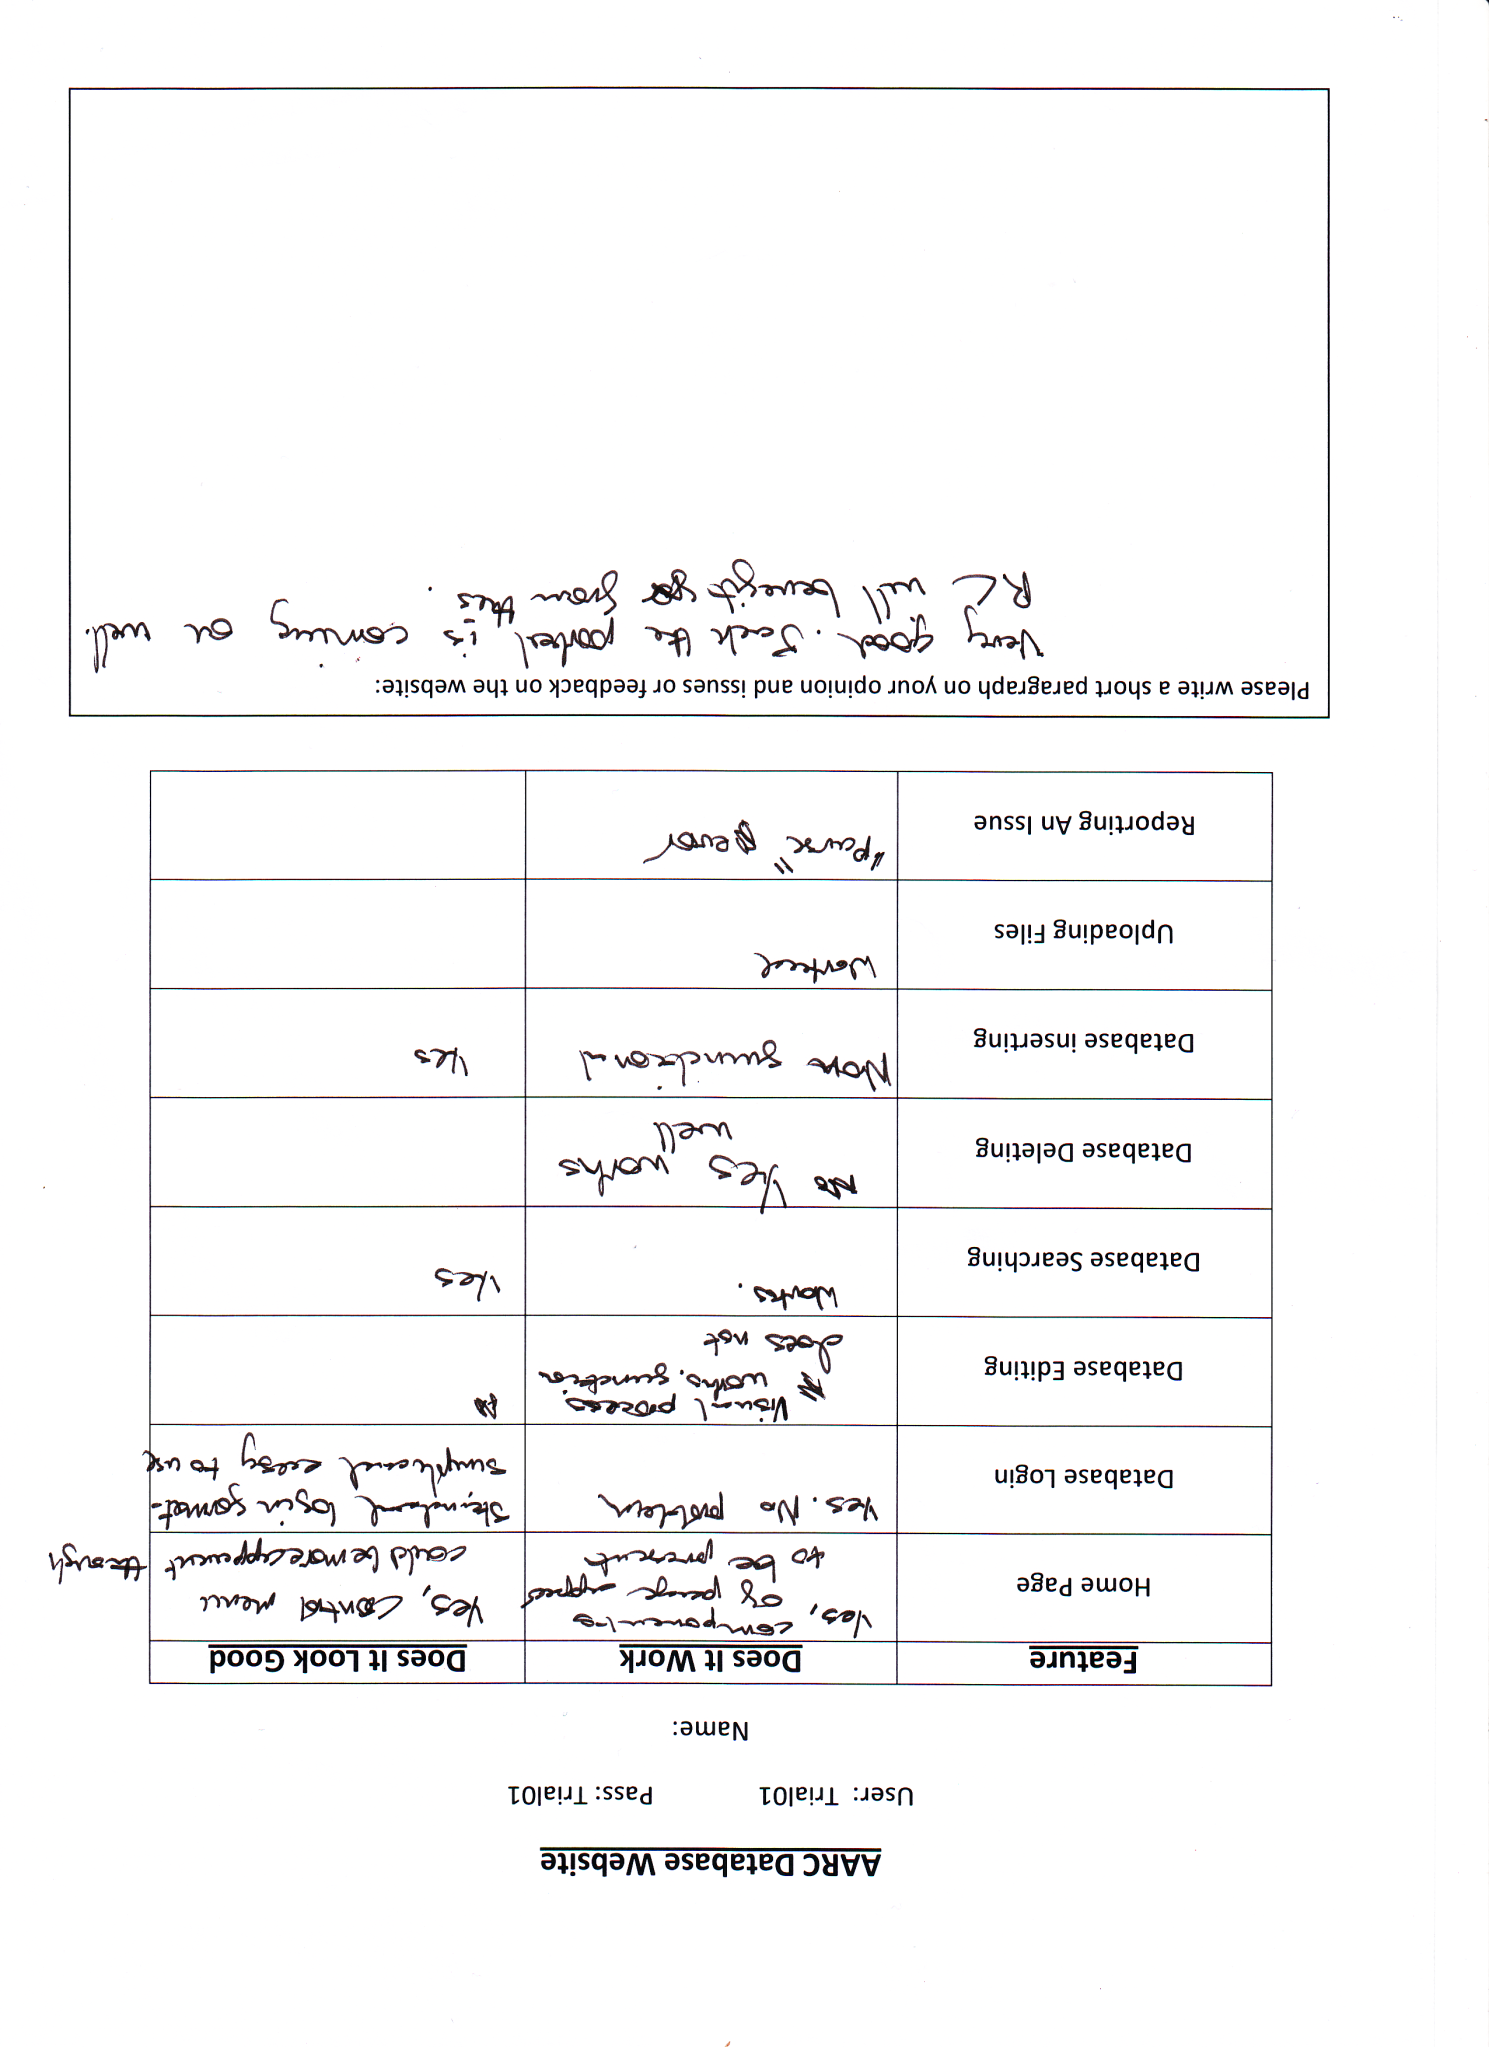 AARC Database Website
User: Trial01 Pass: Trial01
Name:
Feature Does It Work Does It Look Good
Home Page
Yes, components
of page appear
to be present
Yes, control menu
could be more apparent through
Database Login
Yes. No problem
Standard login format-
simple and easy to use
Database Editing
Visual process
works, function
does not
Database Searching
Works.
Yes
Database Deleting
No Yes works
well
Database inserting
Non functional
Yes
Uploading Files
Worked
Reporting An Issue
"Parse" error
Please write a short paragraph on your opinion and issues or feedback on the website:
Very good. Jack the portal is coming on well.
RC will benefit from this.